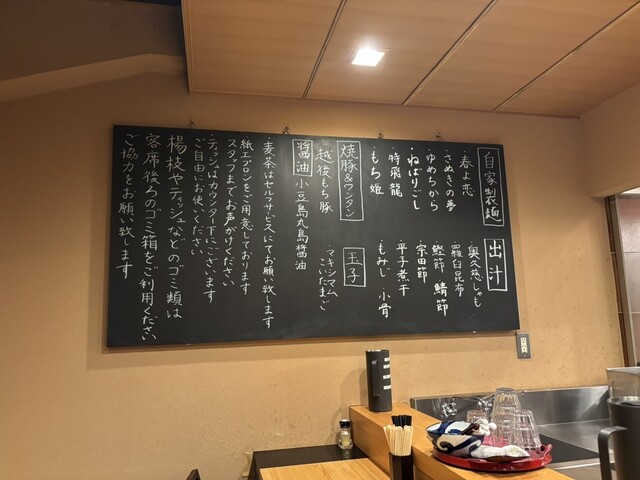 自家製麺
春よ恋
さぬきの夢
ゆめちから
ねばりごし
特飛龍
もち姫
出汁
奥久慈しゃも
羅臼昆布
鰹節 鯖節
宗田節
平子煮干
もみじ・小骨
焼豚&ワンタン
越後もち豚
玉子
・マキシマム
こいたまご
醤油 小豆島丸島醤油
・麦茶はセルフサービスにてお願い致します
紙エプロンをご用意しております
スタッフまでお声がけください
・ティッシュはカウンター下にございます
ご自由にお使いください
楊枝やティッシュなどのゴミ類は
客席後ろのゴミ箱をご利用ください
ご協力をお願い致します